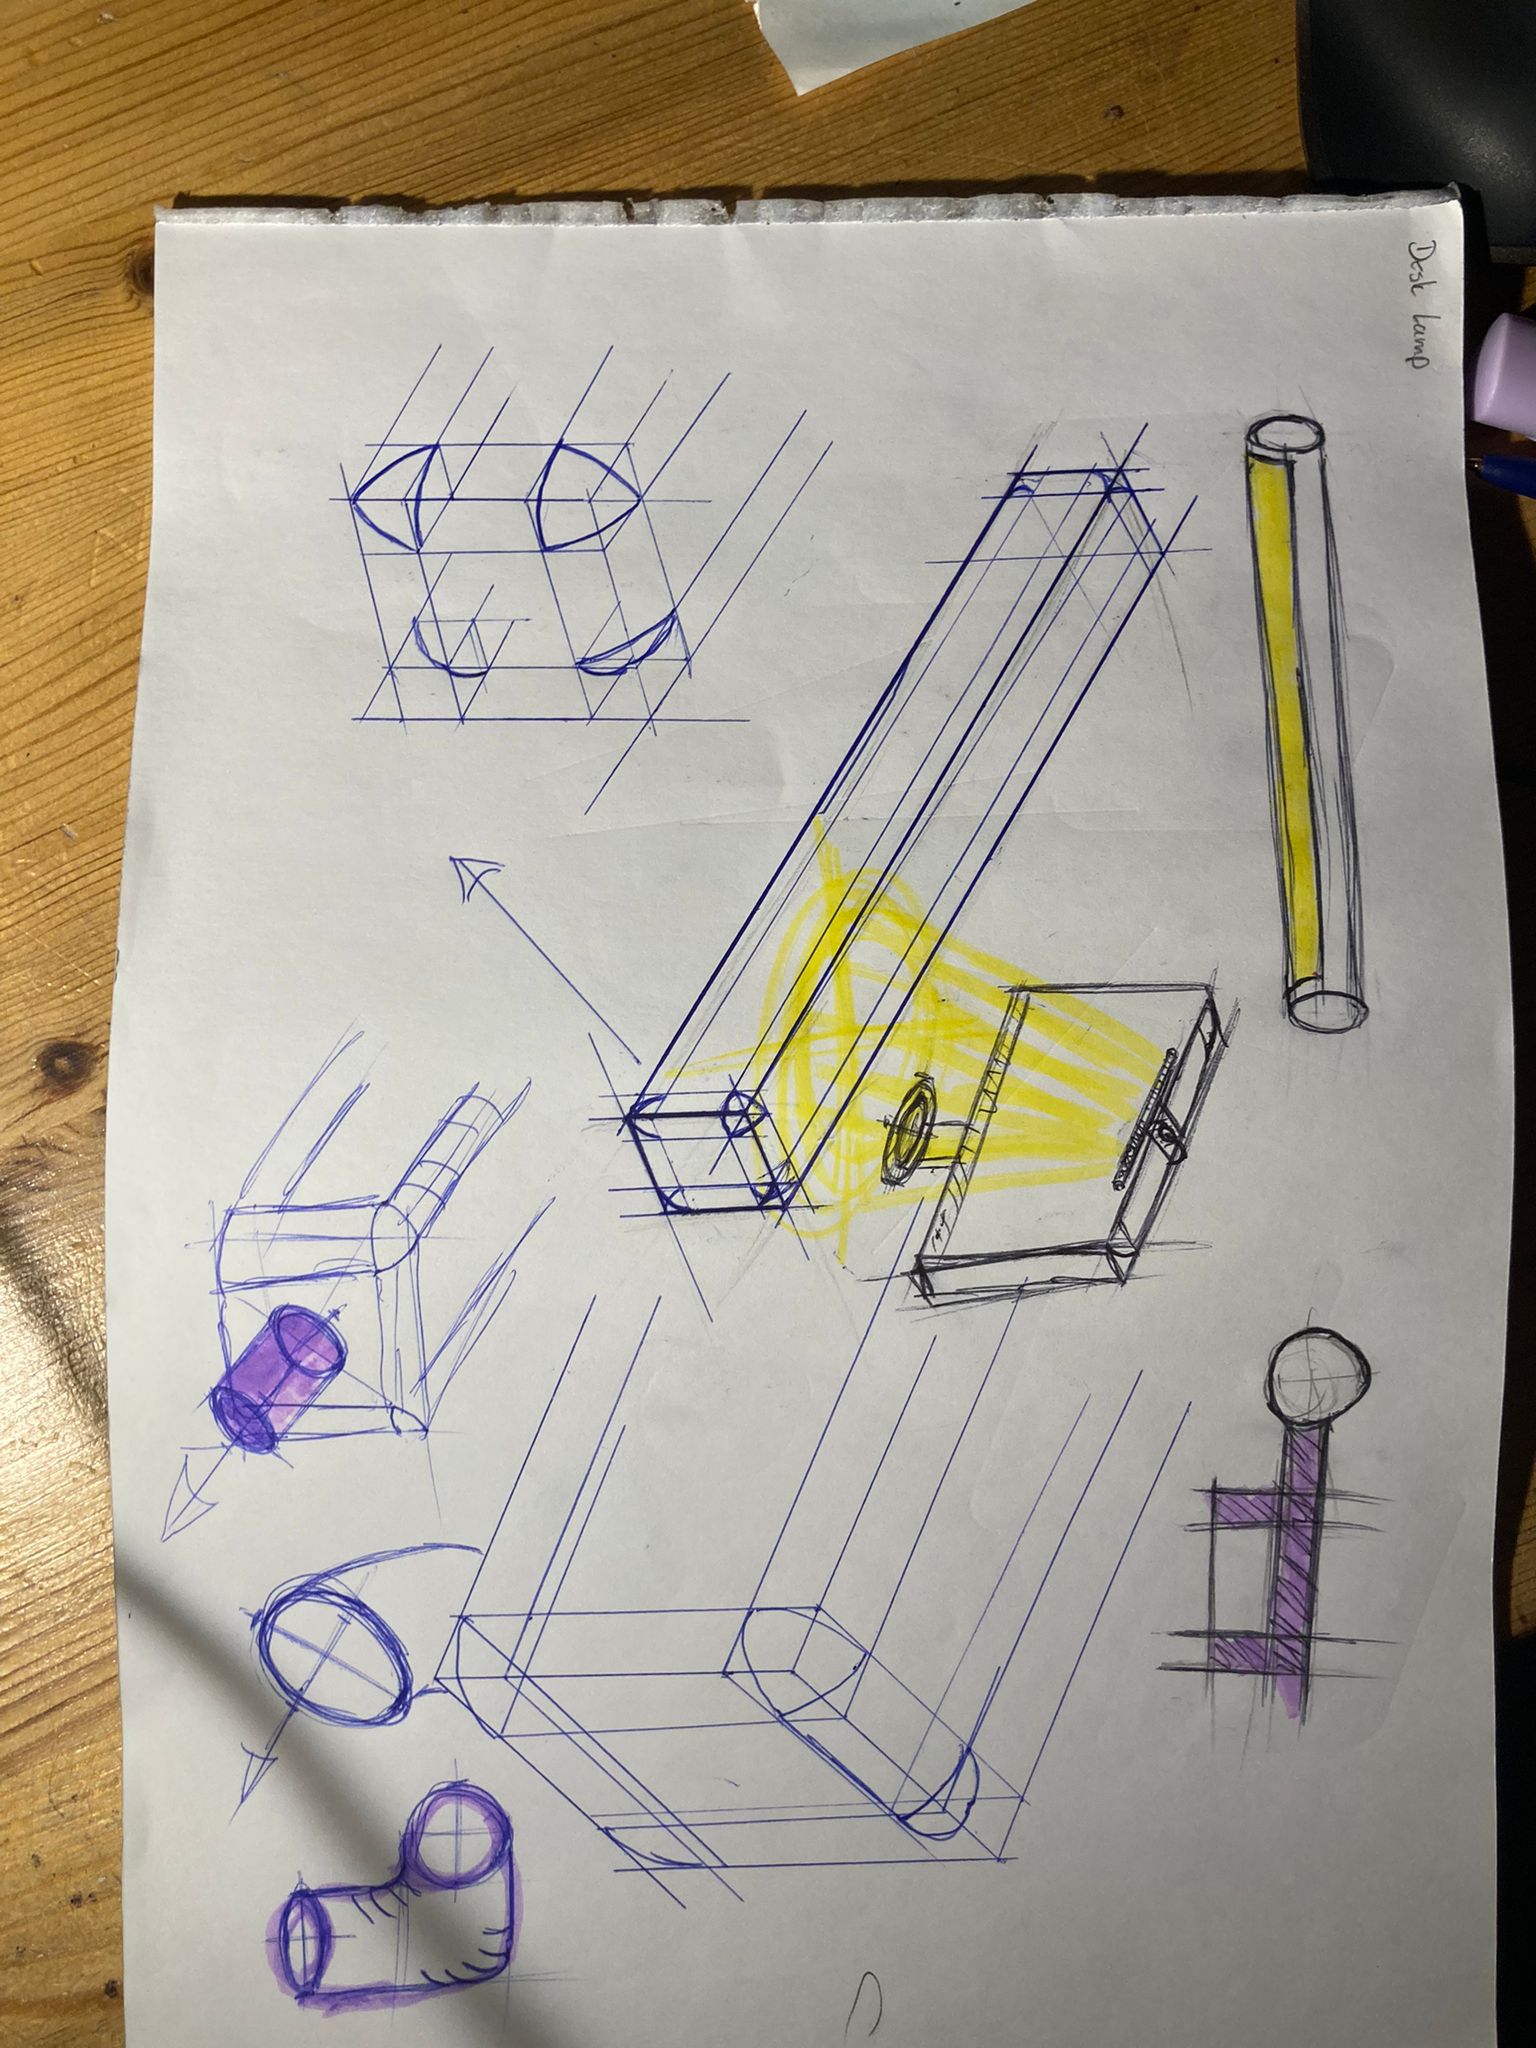 Desk Lamp